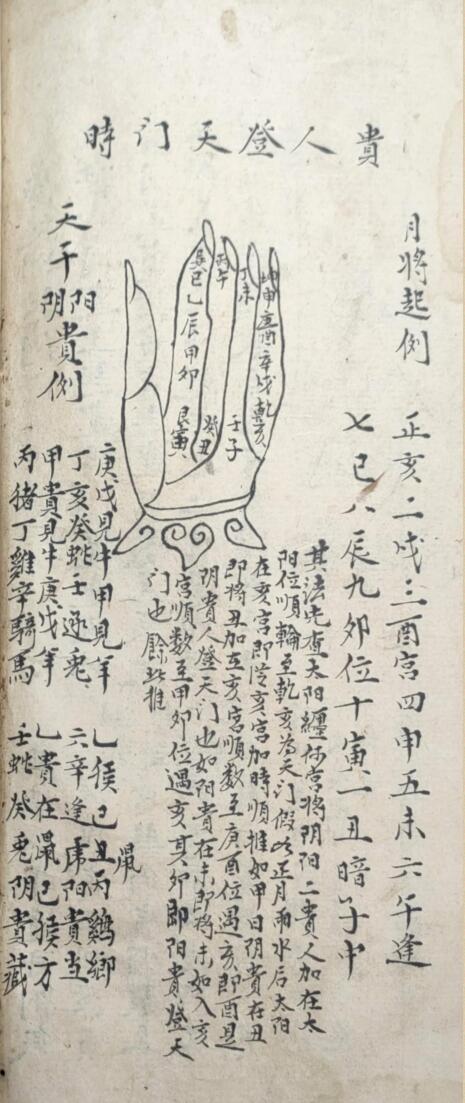 貴人登天门時
月將起例
正亥二戌三酉宫四申五未六午逢
七巳八辰九卯位十寅一丑暗子中
坤申庚酉辛戌乾亥
丁未
壬子
丙午
癸丑
巽巳乙辰甲卯
艮寅
其法先查太阳纏何宫将阴阳二貴人加在太
阳位順輪至乾亥为天门假以正月雨水后太阳
在亥宫即從亥宫加時順推如甲日阴貴在丑
即将丑加在亥宫順数至庚酉位遇亥即酉是
阴貴人登天门也如阳貴在未即将未加入亥
宫順数至甲卯位遇亥其卯即阳貴登天
门也餘此推
天干阴阳貴例
庚戊見牛甲見羊 乙猴己丑丙鷄鄉
鼠
丁亥癸蛇壬逐兎 六辛逢虎阳貴当
甲貴見牛庚戊羊 乙貴在鼠己猴方
丙猪丁雞辛騎馬 壬蛇癸兎阴貴藏